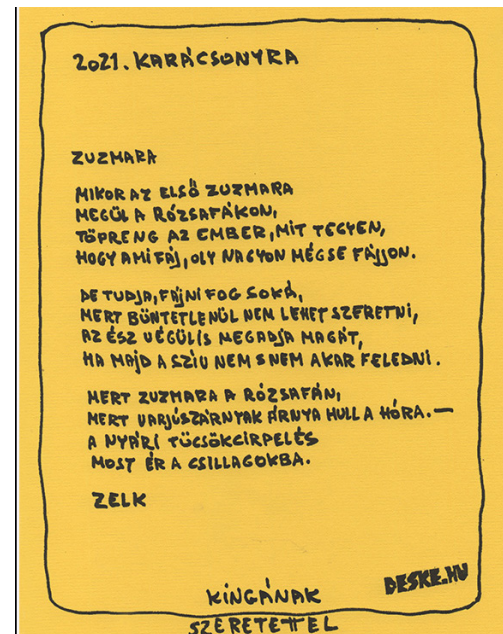 2021. KARÁCSONYRA
ZUZMARA
MIKOR AZ ELSŐ ZUZMARA
MEGÜL A RÓZSAFÁKON,
TÖPRENG AZ EMBER, MIT TEGYEN,
HOGY AMI FÁJ, OLY NAGYON MÉGSE FÁJJON.
DE TUDJA, FÁJNI FOG SOKÁ,
MERT BÜNTETLENÜL NEM LEHET SZERETNI,
AZ ÉSZ VÉGÜLIS MEGADJA MAGÁT,
HA MAJD A SZIV NEM S NEM AKAR FELEDNI.
MERT ZUZMARA A RÓZSAFÁN,
MERT VARJÚSZÁRNYAK ÁRNYA HULL A HÓRA. —
A NYÁRI TÜCSÖKCIRPELÉS
MOST ÉR A CSILLAGOKBA.
ZELK
DESKE.HU
KINGÁNAK
SZERETETTEL